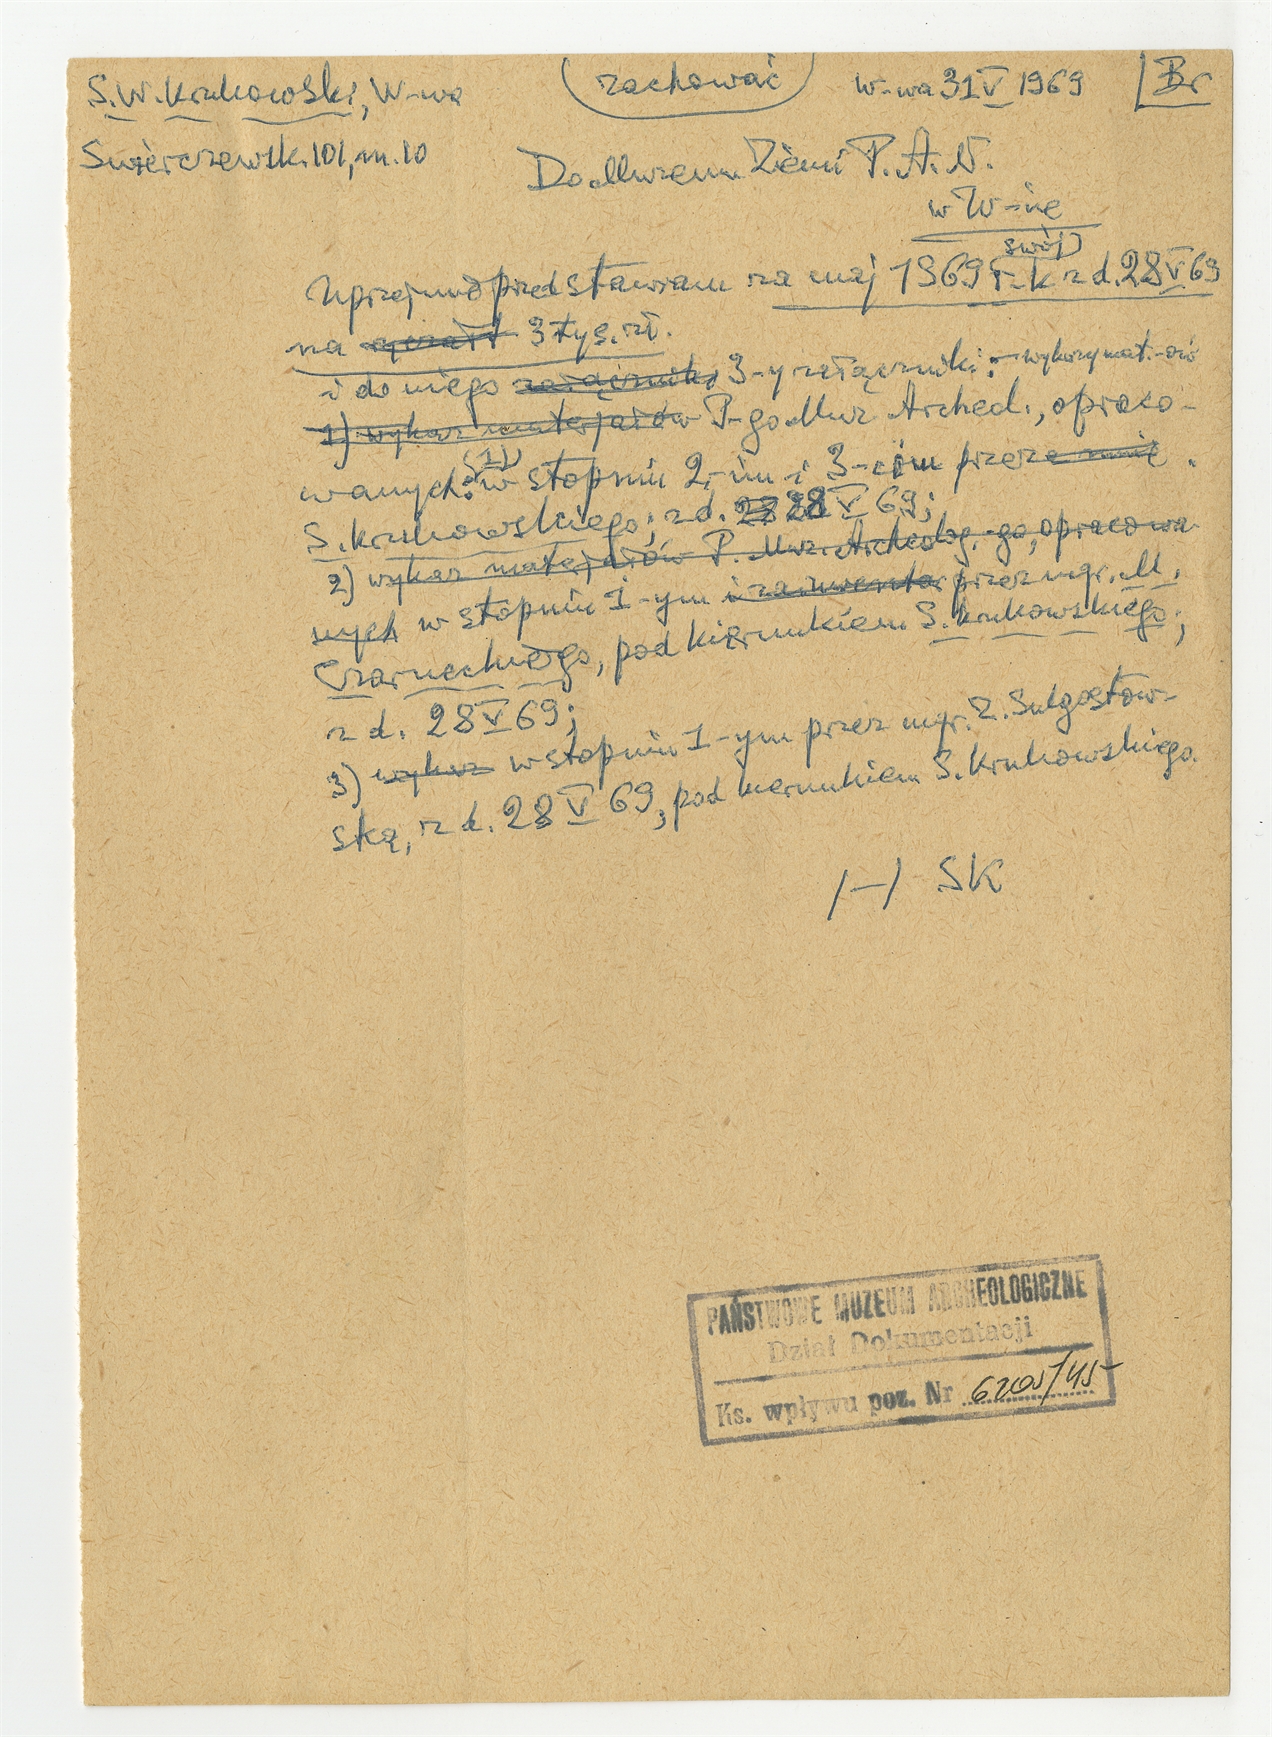 S.W. Krukowski, W-wa
zachować
W-wa 31 V 1969
Br
Świerczewsk. 101, m. 10
Do Muzeum Ziemi P.A.N.
w W-ie
swój
Uprzejmie przedstawiam za maj 1969 r-k z d. 28 V 69
na 3 tys. zł.
i do niego 3-y załączniki: wykazy mat.-ów
1) wykaz materjałów P-go Muz Archeol., opraco-
wanych: (1) w stopniu 2-im i 3-cim przeze mnie
S. Krukowskiego; z d. 28 V 69;
2) wykaz materjałów P. Muz. Archeolog.-go, opracowa-
nych w stopniu 1-ym przez mgr. M.
Czarneckiego, pod kierunkiem S. Krukowskiego;
z d. 28 V 69;
3) wykaz w stopniu 1-ym przez mgr. Z. Sulgostow-
ską, z d. 28 V 69, pod kierunkiem S. Krukowskiego.
/-/ SK
PAŃSTWOWE MUZEUM ARCHEOLOGICZNE
Dział Dokumentacji
Ks. wpływu poz. Nr 6205/45